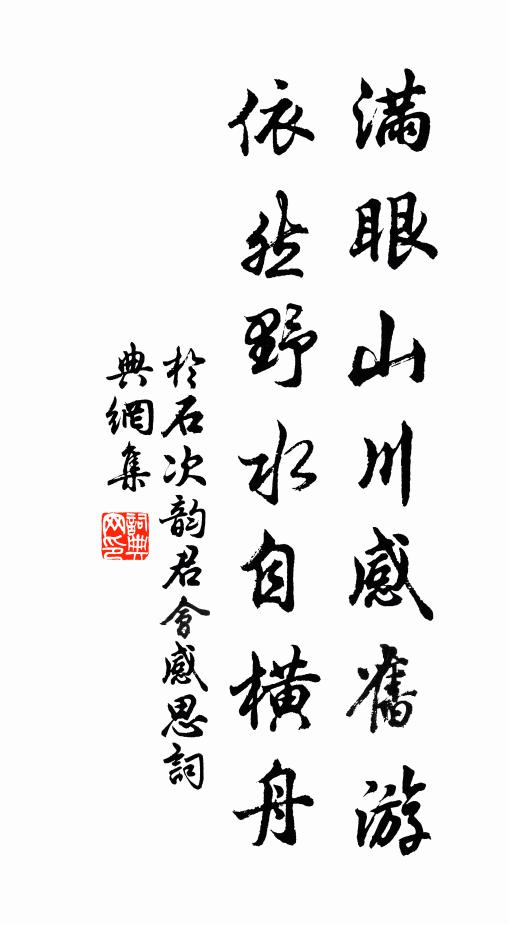 滿眼山川感舊游
依然野水自橫舟
於石次韵君會感思詞
典網集
詞典
网印